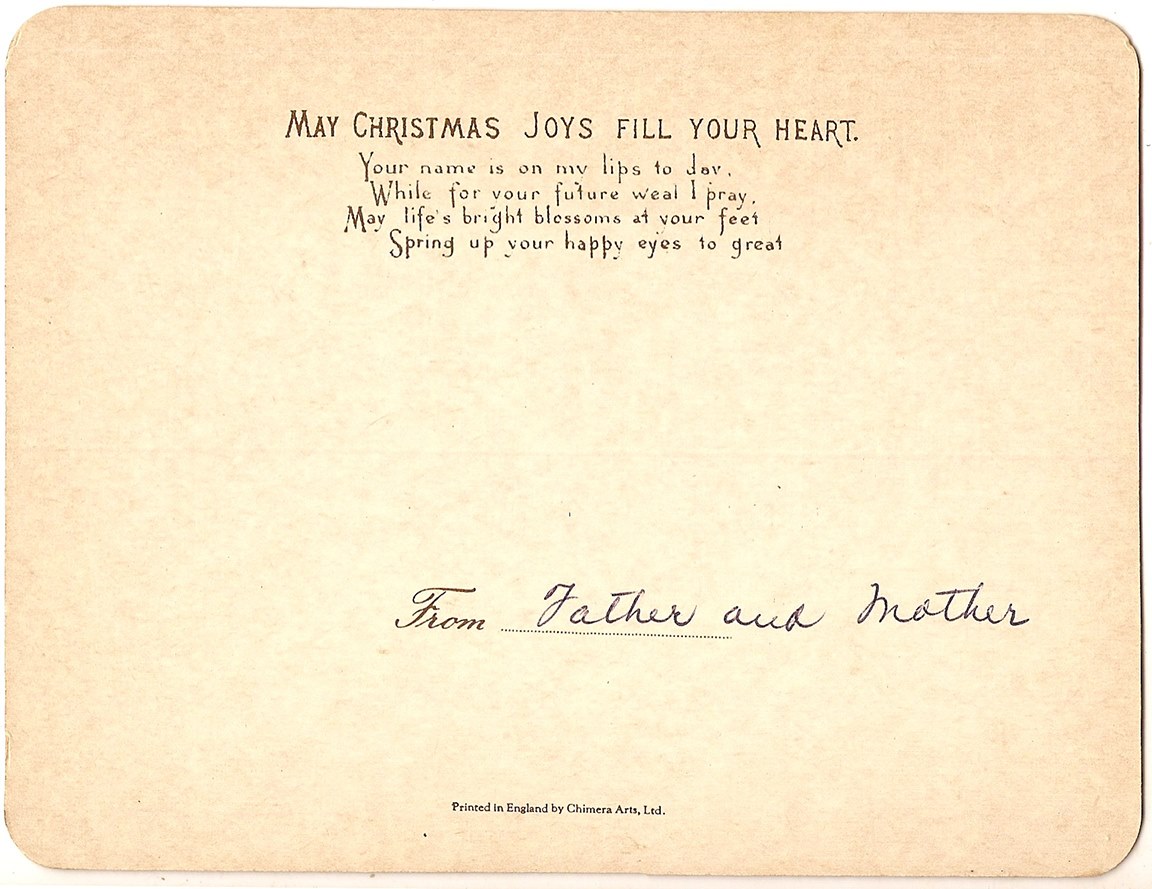 MAY CHRISTMAS JOYS FILL YOUR HEART.
Your name is on my lips to day,
While for your future weal I pray,
May life's bright blossoms at your feet
Spring up your happy eyes to great
From Father and Mother
Printed in England by Chimera Arts, Ltd.